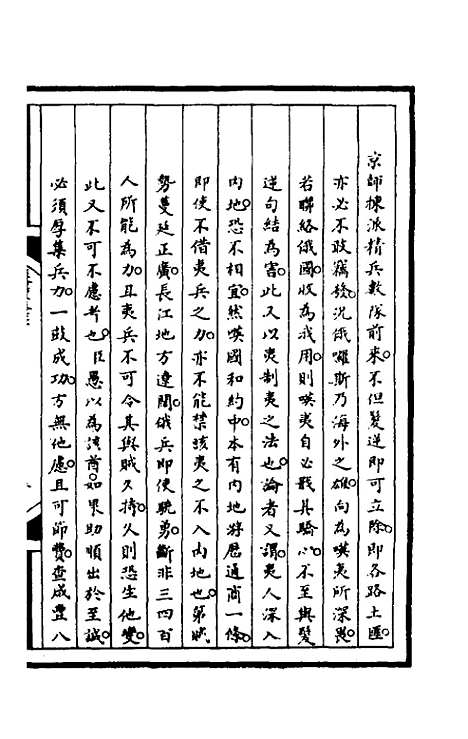 京師揀派精兵數隊前來不但髮逆即可立除即各路土匪
亦必不敢竊發況俄囉斯乃海外之雄向為嘆夷所深畏
若聯絡俄國收為我用則嘆夷自必戢其驕心不至與髮
逆勾結為害此又以夷制夷之法也論者又謂夷人深入
內地恐不相宜然嘆國和約中本有內地游歷通商一條
即使不借夷兵之力亦不能禁該夷之不入內地也第賊
勢蔓延正廣長江地方遼闊俄兵即使驍勇斷非三四百
人所能為力且夷兵不可令其與賊久持久則恐生他變
此又不可不慮者也臣愚以為該酋如果助順出於至誠
必須厚集兵力一鼓成功方無他慮且可節費查咸豐八